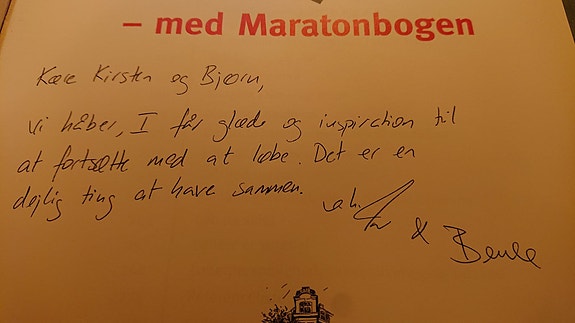 – med Maratonbogen
Kære Kirsten og Bjørn,
Vi håber, I får glæde og inspiration til
at fortsætte med at løbe. Det er en
dejlig ting at have sammen.
&